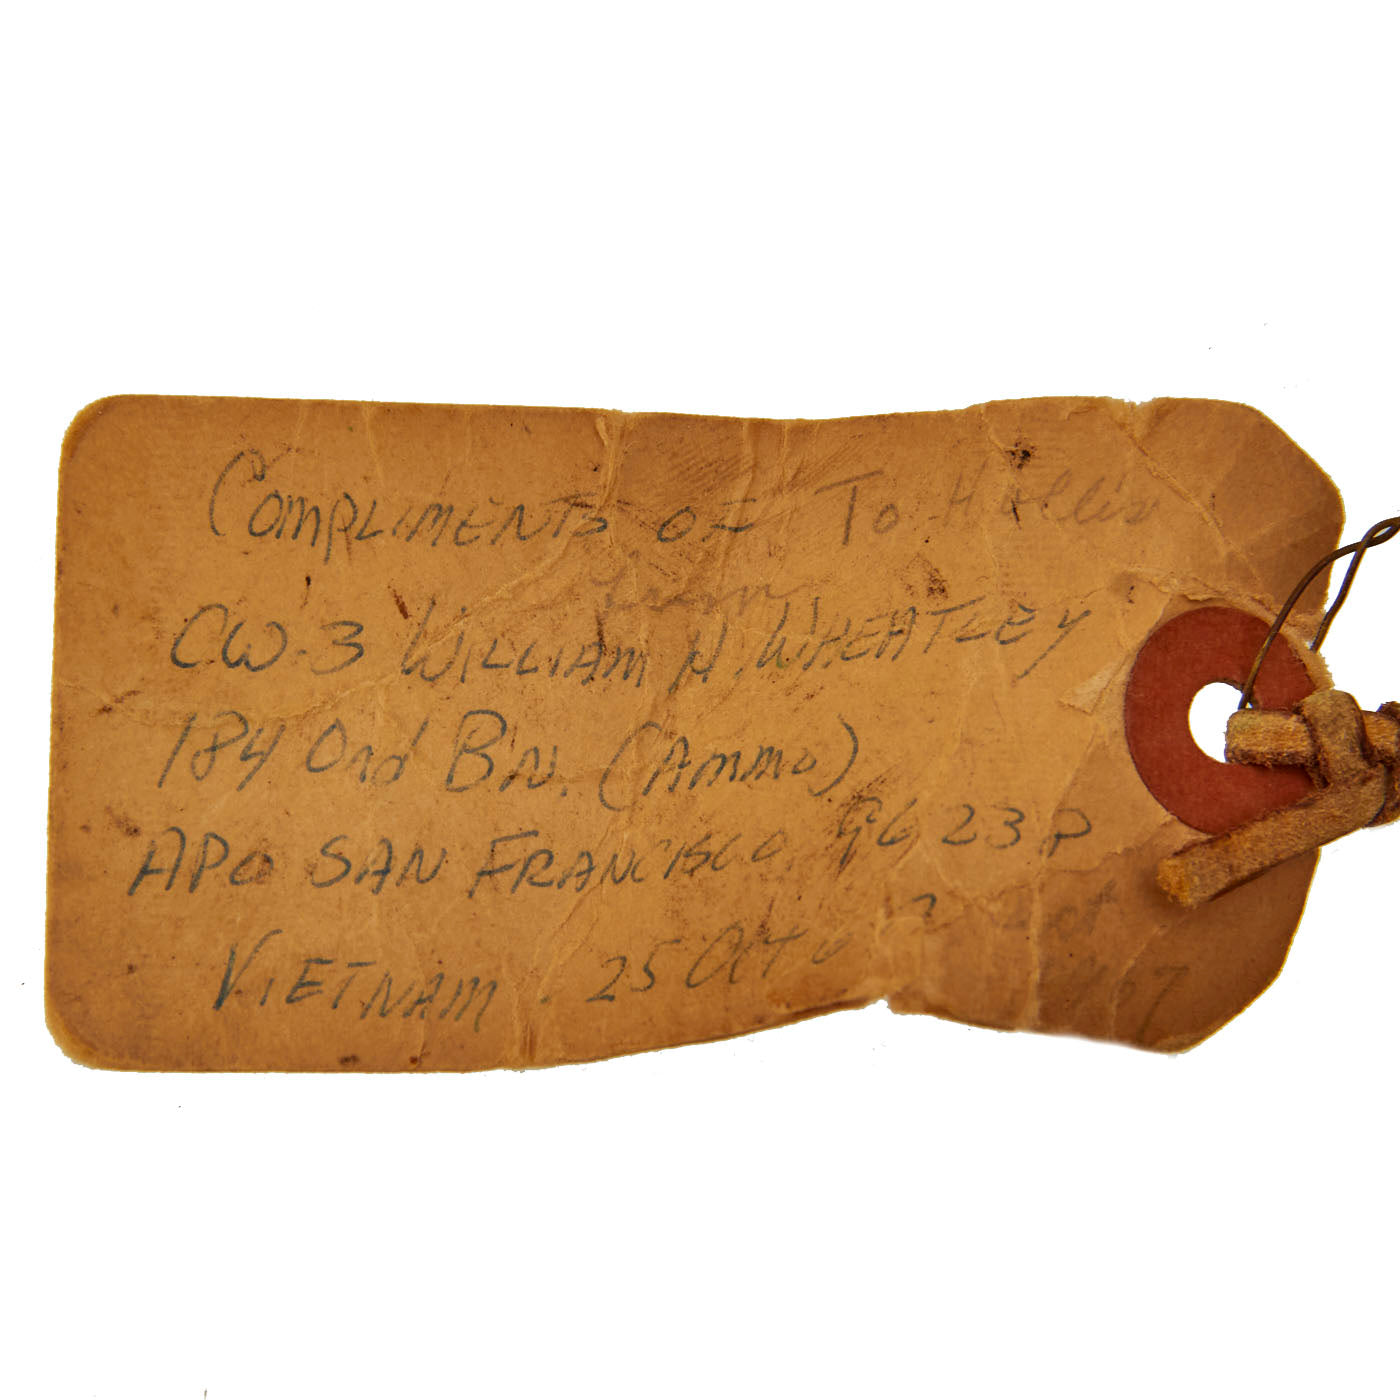 COMPLIMENTS OF To Hollis
from
CW-3 WILLIAM H. WHEATLEY
184 Ord BN. (AMMO)
APO SAN FRANCISCO 96238
VIETNAM. 25 Oct
67